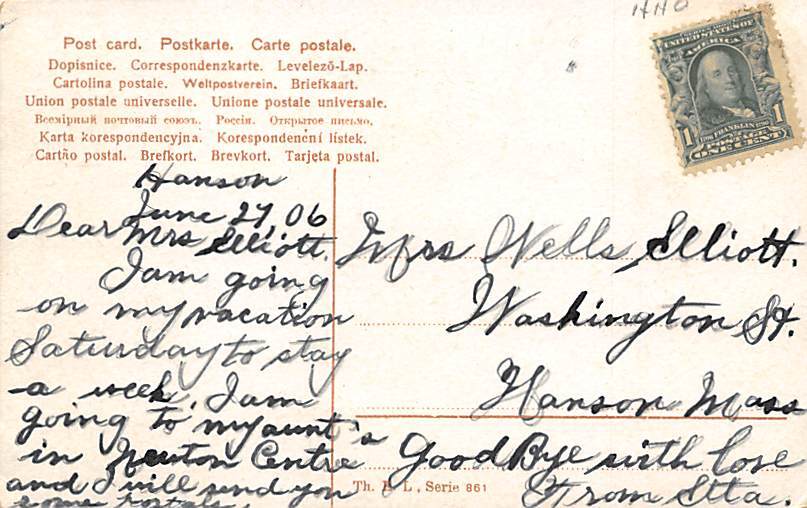 HHO
UNITED STATES OF
AMERICA
1 FRANKLIN 1
POSTAGE
ONE CENT
Post card. Postkarte. Carte postale.
Dopisnice. Correspondenzkarte. Levelező-Lap.
Cartolina postale. Weltpostverein. Briefkaart.
Union postale universelle. Unione postale universale.
Всемірный почтовый союзъ. Россія. Открытое письмо.
Karta korespondencyjna. Korespondenční lístek.
Cartão postal. Brefkort. Brevkort. Tarjeta postal.
Hanson
June 27, 06
Dear Mrs Elliott.
I am going
on my vacation
Saturday to stay
a week, I am
going to my aunt's
in Newton Centre
and I will send you
some postals.
Mrs Wells Elliott.
Washington St.
Hanson Mass
Good Bye with love
From Etta.
Th. E. L., Serie 861